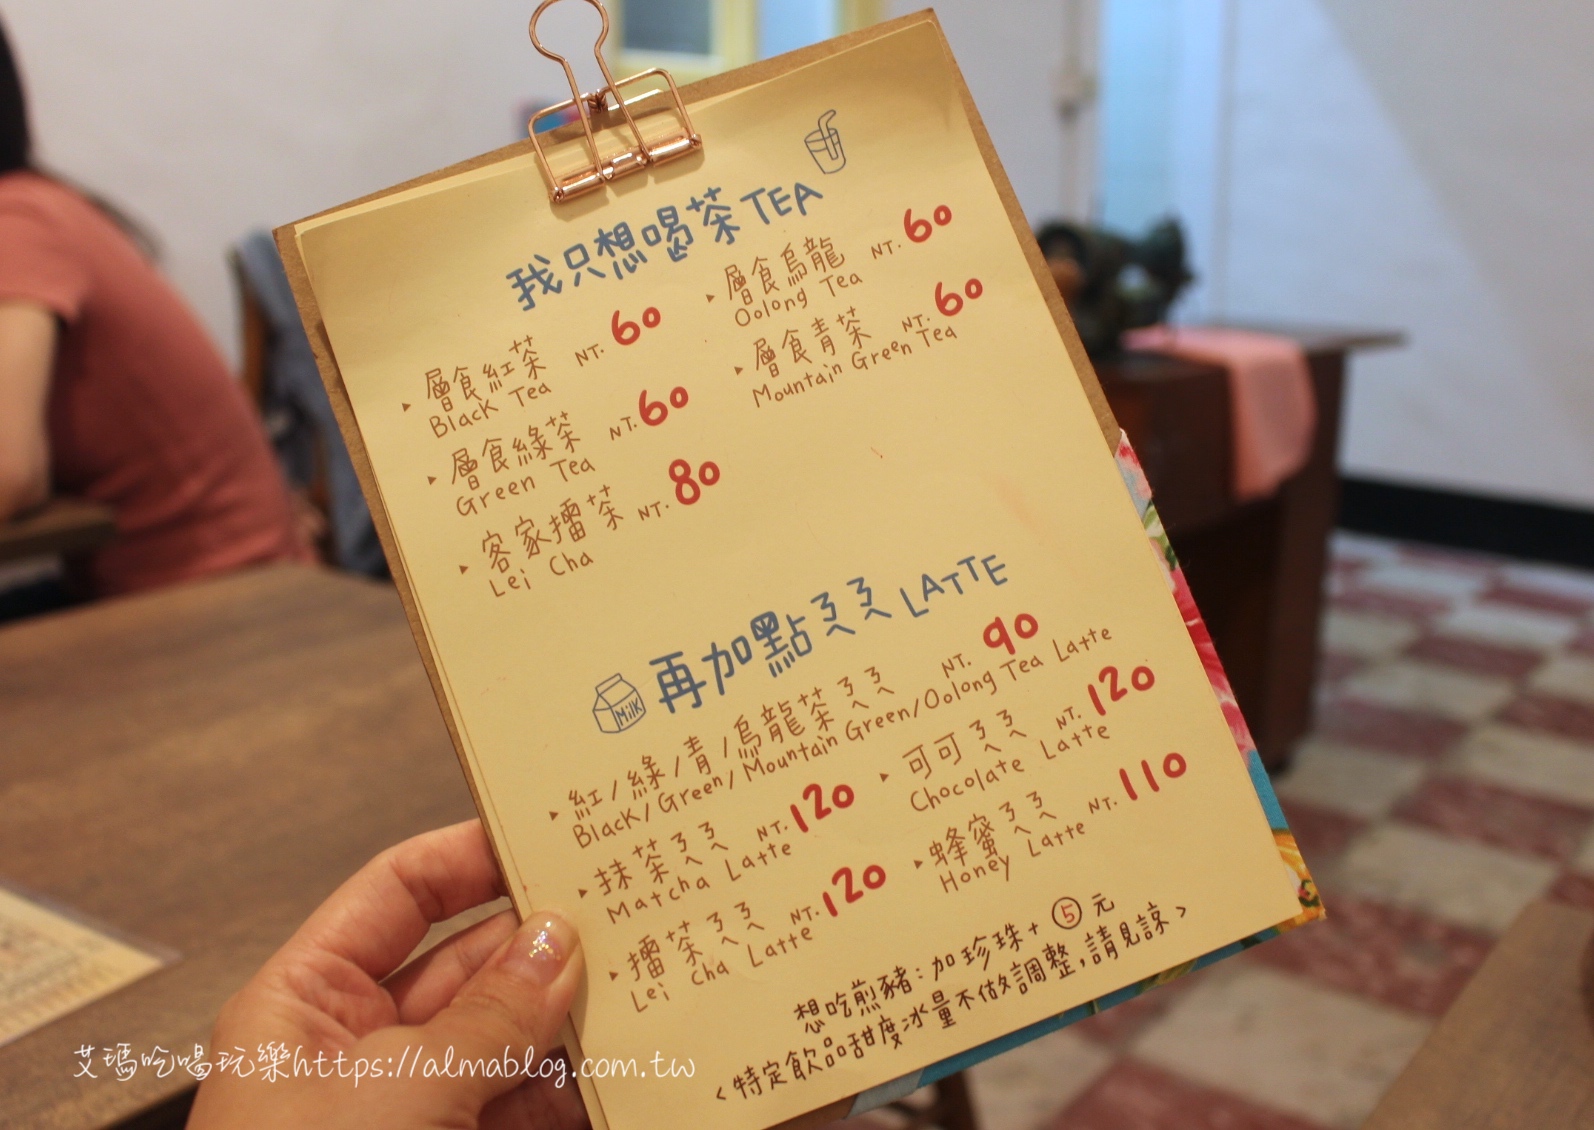 我只想喝茶 TEA
▸ 層食紅茶 NT. 60
Black Tea
▸ 層食烏龍 NT. 60
Oolong Tea
▸ 層食綠茶 NT. 60
Green Tea
▸ 層食青茶 NT. 60
Mountain Green Tea
▸ 客家擂茶 NT. 80
Lei Cha
MilK
再加點ㄋㄟㄋㄟ LATTE
▸ 紅/綠/青/烏龍茶ㄋㄟㄋㄟ NT. 90
Black/Green/Mountain Green/Oolong Tea Latte
▸ 抹茶ㄋㄟㄋㄟ NT. 120
Matcha Latte
▸ 可可ㄋㄟㄋㄟ NT. 120
Chocolate Latte
▸ 擂茶ㄋㄟㄋㄟ NT. 120
Lei Cha Latte
▸ 蜂蜜ㄋㄟㄋㄟ NT. 110
Honey Latte
想吃煎豬:加珍珠+⑤元
<特定飲品甜度冰量不做調整,請見諒>
艾瑪吃喝玩樂https://almablog.com.tw